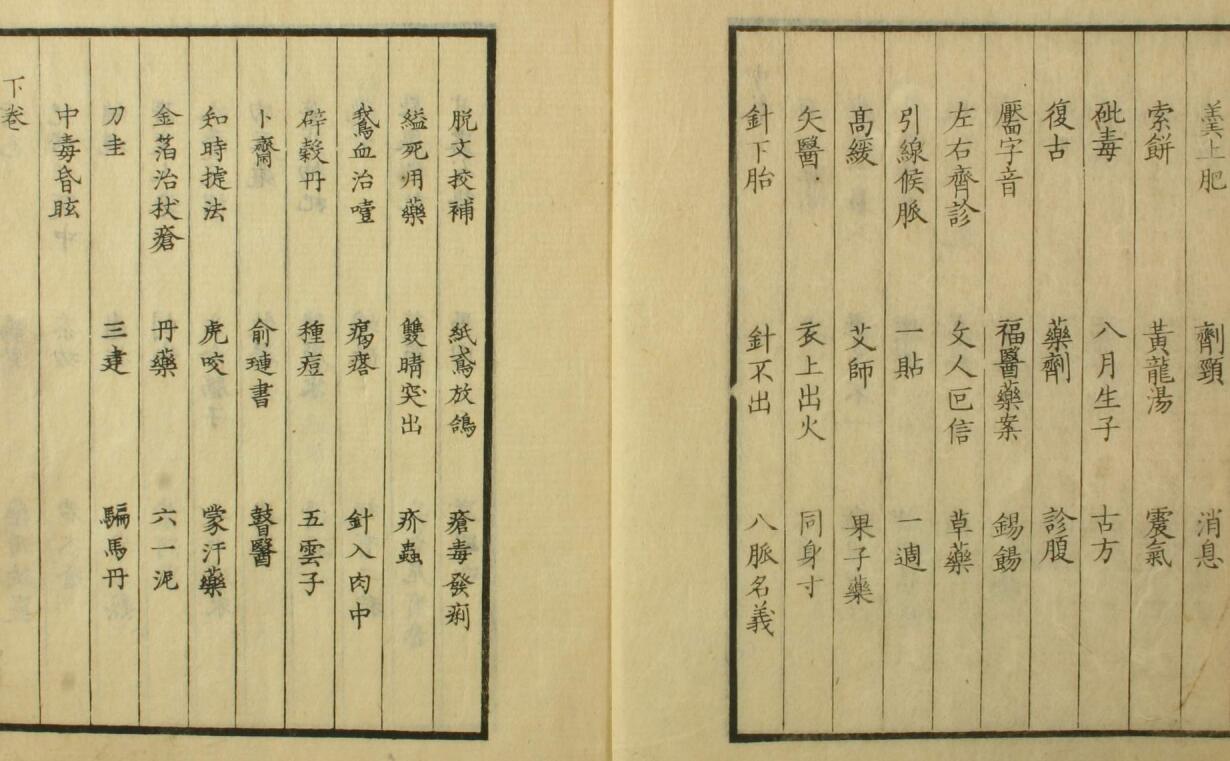 羹上肥 劑頸 消息
索餅 黃龍湯 震氣
砒毒 八月生子 古方
復古 藥劑 診腹
字音 福醫藥案 錫餳
左右齊診 文人叵信 草藥
引線候脈 一貼 一週
高緩 艾師 果子藥
矢醫 衣上出火 同身寸
針下胎 針不出 八脈名義
脫文挍補 紙鳶放鴿 瘡毒發痢
縊死用藥 雙睛突出 疥蟲
鵞血治噎 瘑瘩 針入肉中
辟穀丹 種痘 五雲子
卜齋 俞璉書 瞽醫
知時捷法 虎咬 蒙汗藥
金箔治杖瘡 丹藥 六一泥
刀圭 三建 騙馬丹
中毒昏眩
下卷